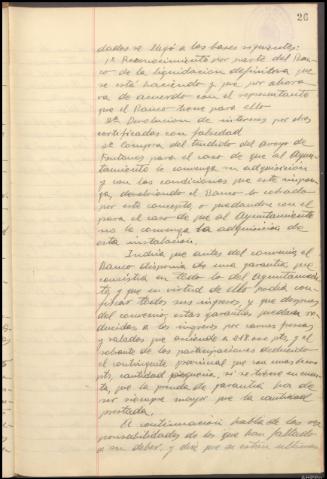 26
dados se llegó a las bases siguientes:
1ª Reconocimiento por parte del Ban-
co de la liquidacion definitiva que
se está haciendo y que por ahora
va de acuerdo con el representante
que el Banco tiene para ello
2ª Devolucion de intereses por obras
certificadas con falsedad
3ª Compra del tendido del arroyo de
Fontanos para el caso de que al Ayun-
tamiento le convenga su adquisicion
y con las condiciones que este impon-
ga, devolviendo el Banco lo cobrado
por este concepto, o quedandose con el
para el caso de que al Ayuntamiento
no le convenga la adquisicion de
esta instalacion.
Indica que antes del convenio, el
Banco disponia de una garantia, que
consistia en todo lo del Ayuntamien-
to, y que en virtud de ello podia con-
fiscar todos sus ingresos, y que despues
del convenio, estas garantias quedaran re-
ducidas a los ingresos por carnes frescas
y saladas que asciende a 218.000 pts, y el
sobante de las participaciones deduciendo
el contingente provincial que son unas pts
pts, cantidad pequeña, si se tiene en cuen-
ta, que la prenda de garantia ha de
ser siempre mayor que la cantidad
prestada.
A continuacion habla de las res-
ponsabilidades de los que han faltado
a su deber, y dice que se están ultiman